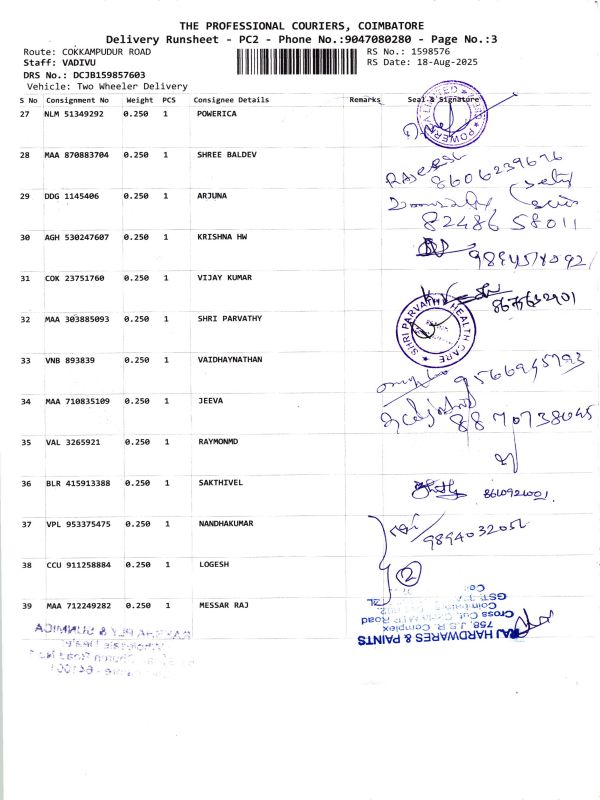 THE PROFESSIONAL COURIERS, COIMBATORE
Delivery Runsheet - PC2 - Phone No.:9047080280 - Page No.:3
Route: COKKAMPUDUR ROAD RS No.: 1598576
Staff: VADIVU RS Date: 18-Aug-2025
DRS No.: DCJB159857603
Vehicle: Two Wheeler Delivery
S No Consignment No Weight PCS Consignee Details Remarks Seal & Signature
27 NLM 51349292 0.250 1 POWERICA
28 MAA 870883704 0.250 1 SHREE BALDEV
8606239676
29 DDG 1145406 0.250 1 ARJUNA
82486 58011
30 AGH 530247607 0.250 1 KRISHNA HW
31 COK 23751760 0.250 1 VIJAY KUMAR
32 MAA 303885093 0.250 1 SHRI PARVATHY
SHRI PARVATHI HEALTH CARE
33 VNB 893839 0.250 1 VAIDHAYNATHAN
9566945793
34 MAA 710835109 0.250 1 JEEVA
8870738045
35 VAL 3265921 0.250 1 RAYMONMD
36 BLR 415913388 0.250 1 SAKTHIVEL
37 VPL 953375475 0.250 1 NANDHAKUMAR
9894032052
38 CCU 911258884 0.250 1 LOGESH
2
39 MAA 712249282 0.250 1 MESSAR RAJ
RAJ HARDWARES & PAINTS
758, J.S.R. Complex